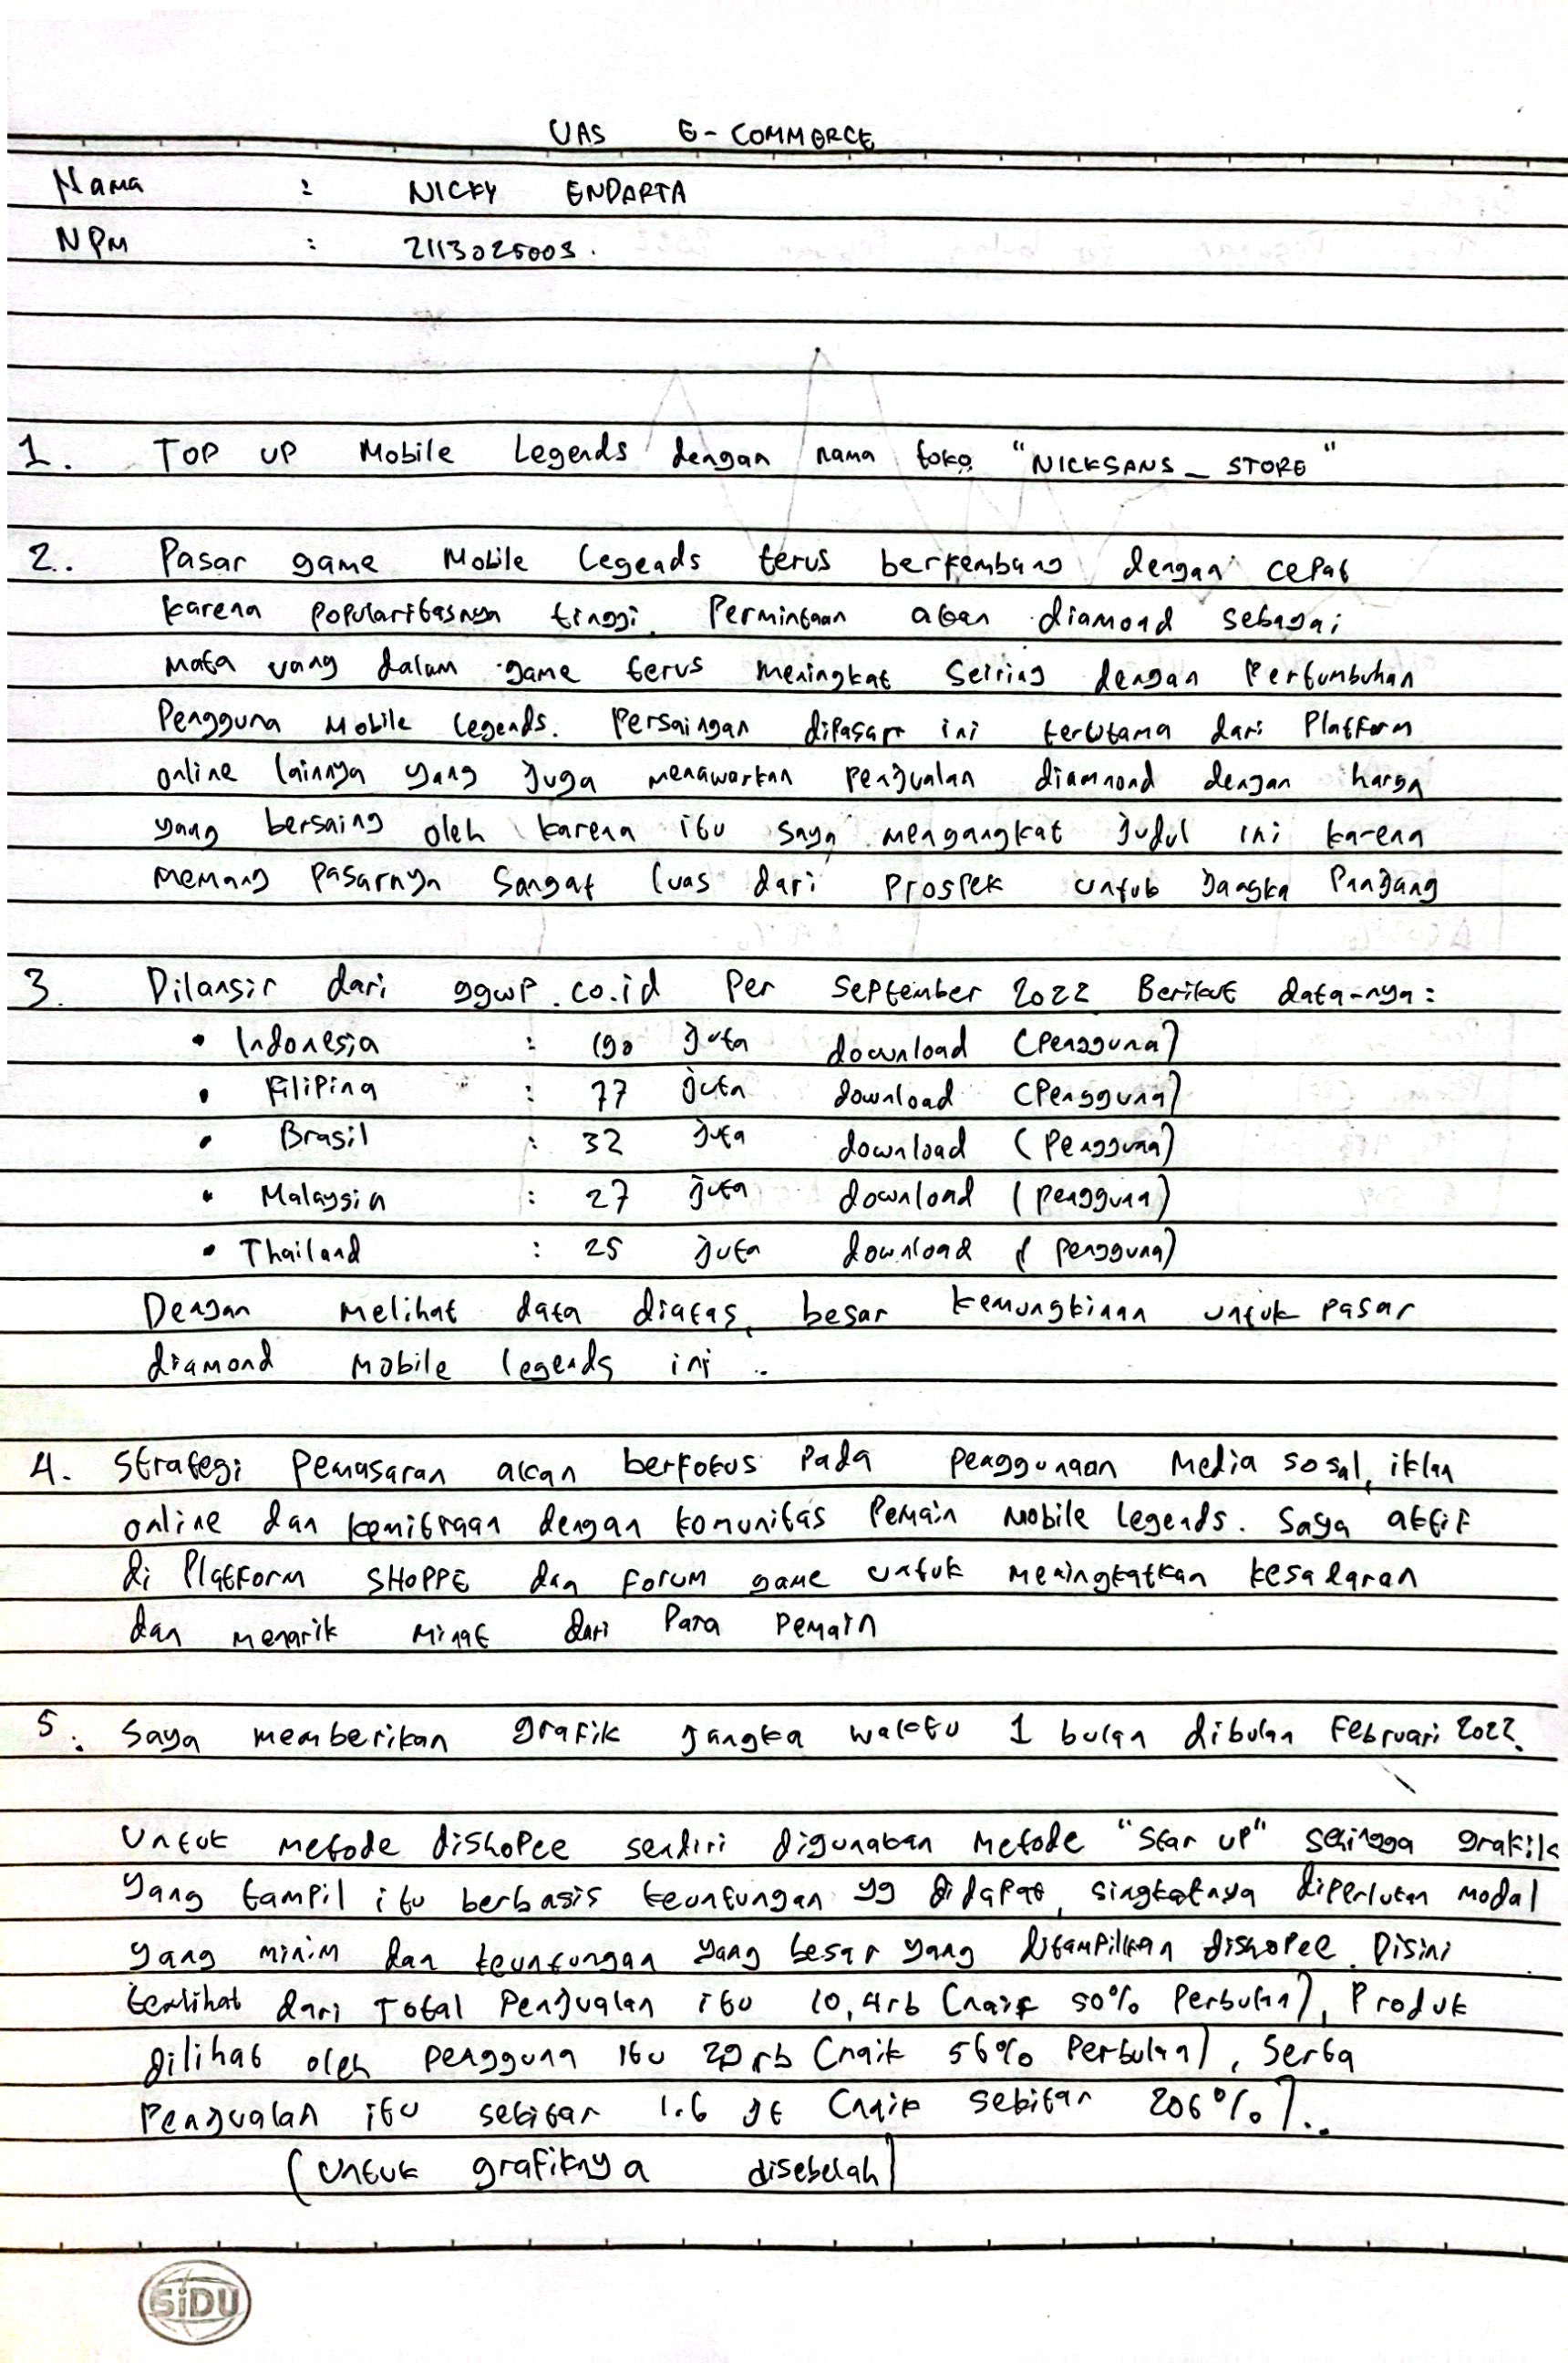 UAS E-COMMERCE
Nama : NICKY ENDARTA
NPM : 2113025003.
1. TOP UP Mobile Legends dengan nama toko "NICKSANS_STORE"
2. Pasar game Mobile Legends terus berkembang dengan cepat
karena popularitasnya tinggi. Permintaan akan diamond sebagai
mata uang dalam game terus meningkat seiring dengan Pertumbuhan
Pengguna Mobile Legends. Persaingan dipasar ini terutama dari Platform
online lainnya yang juga menawarkan penjualan diamnond dengan harga
yang bersaing oleh karena itu saya mengangkat judul ini karena
memang pasarnya sangat luas dari prospek untuk jangka panjang
3. Dilansir dari ggwp.co.id Per September 2022 Berikut data-nya:
• Indonesia : 190 juta download (Pengguna)
• Filipina : 77 juta download (Pengguna)
• Brasil : 32 juta download (Pengguna)
• Malaysia : 27 juta download (pengguna)
• Thailand : 25 juta download (pengguna)
Dengan melihat data diatas, besar kemungkinan untuk pasar
diamond Mobile legends ini ..
4. Strategi pemasaran akan berfokus pada penggunaan Media sosal, iklan
online dan kemitraan dengan komunitas Pemain Mobile Legends. Saya aktif
di Platform SHOPPE dan forum game untuk meningkatkan kesadaran
dan menarik minat dari Para Pemain
5. Saya memberikan grafik jangka waktu 1 bulan dibulan Februari 2022.
Untuk metode dishopee sendiri digunakan metode "Star up" sehingga grakik
yang tampil itu berbasis keuntungan yg didapat, singkatnya diperlukan modal
yang minim dan keuntungan yang besar yang ditampilkan dishopee. Disini
terlihat dari Total Penjualan itu 10,4rb (naik 50% Perbulan), Produk
dilihat oleh pengguna itu 29rb (naik 56% Perbulan), Serta
Penjualan itu sekitar 1.6 jt (naik sekitar 206%)..
(Untuk grafiknya disebelah)
SiDU